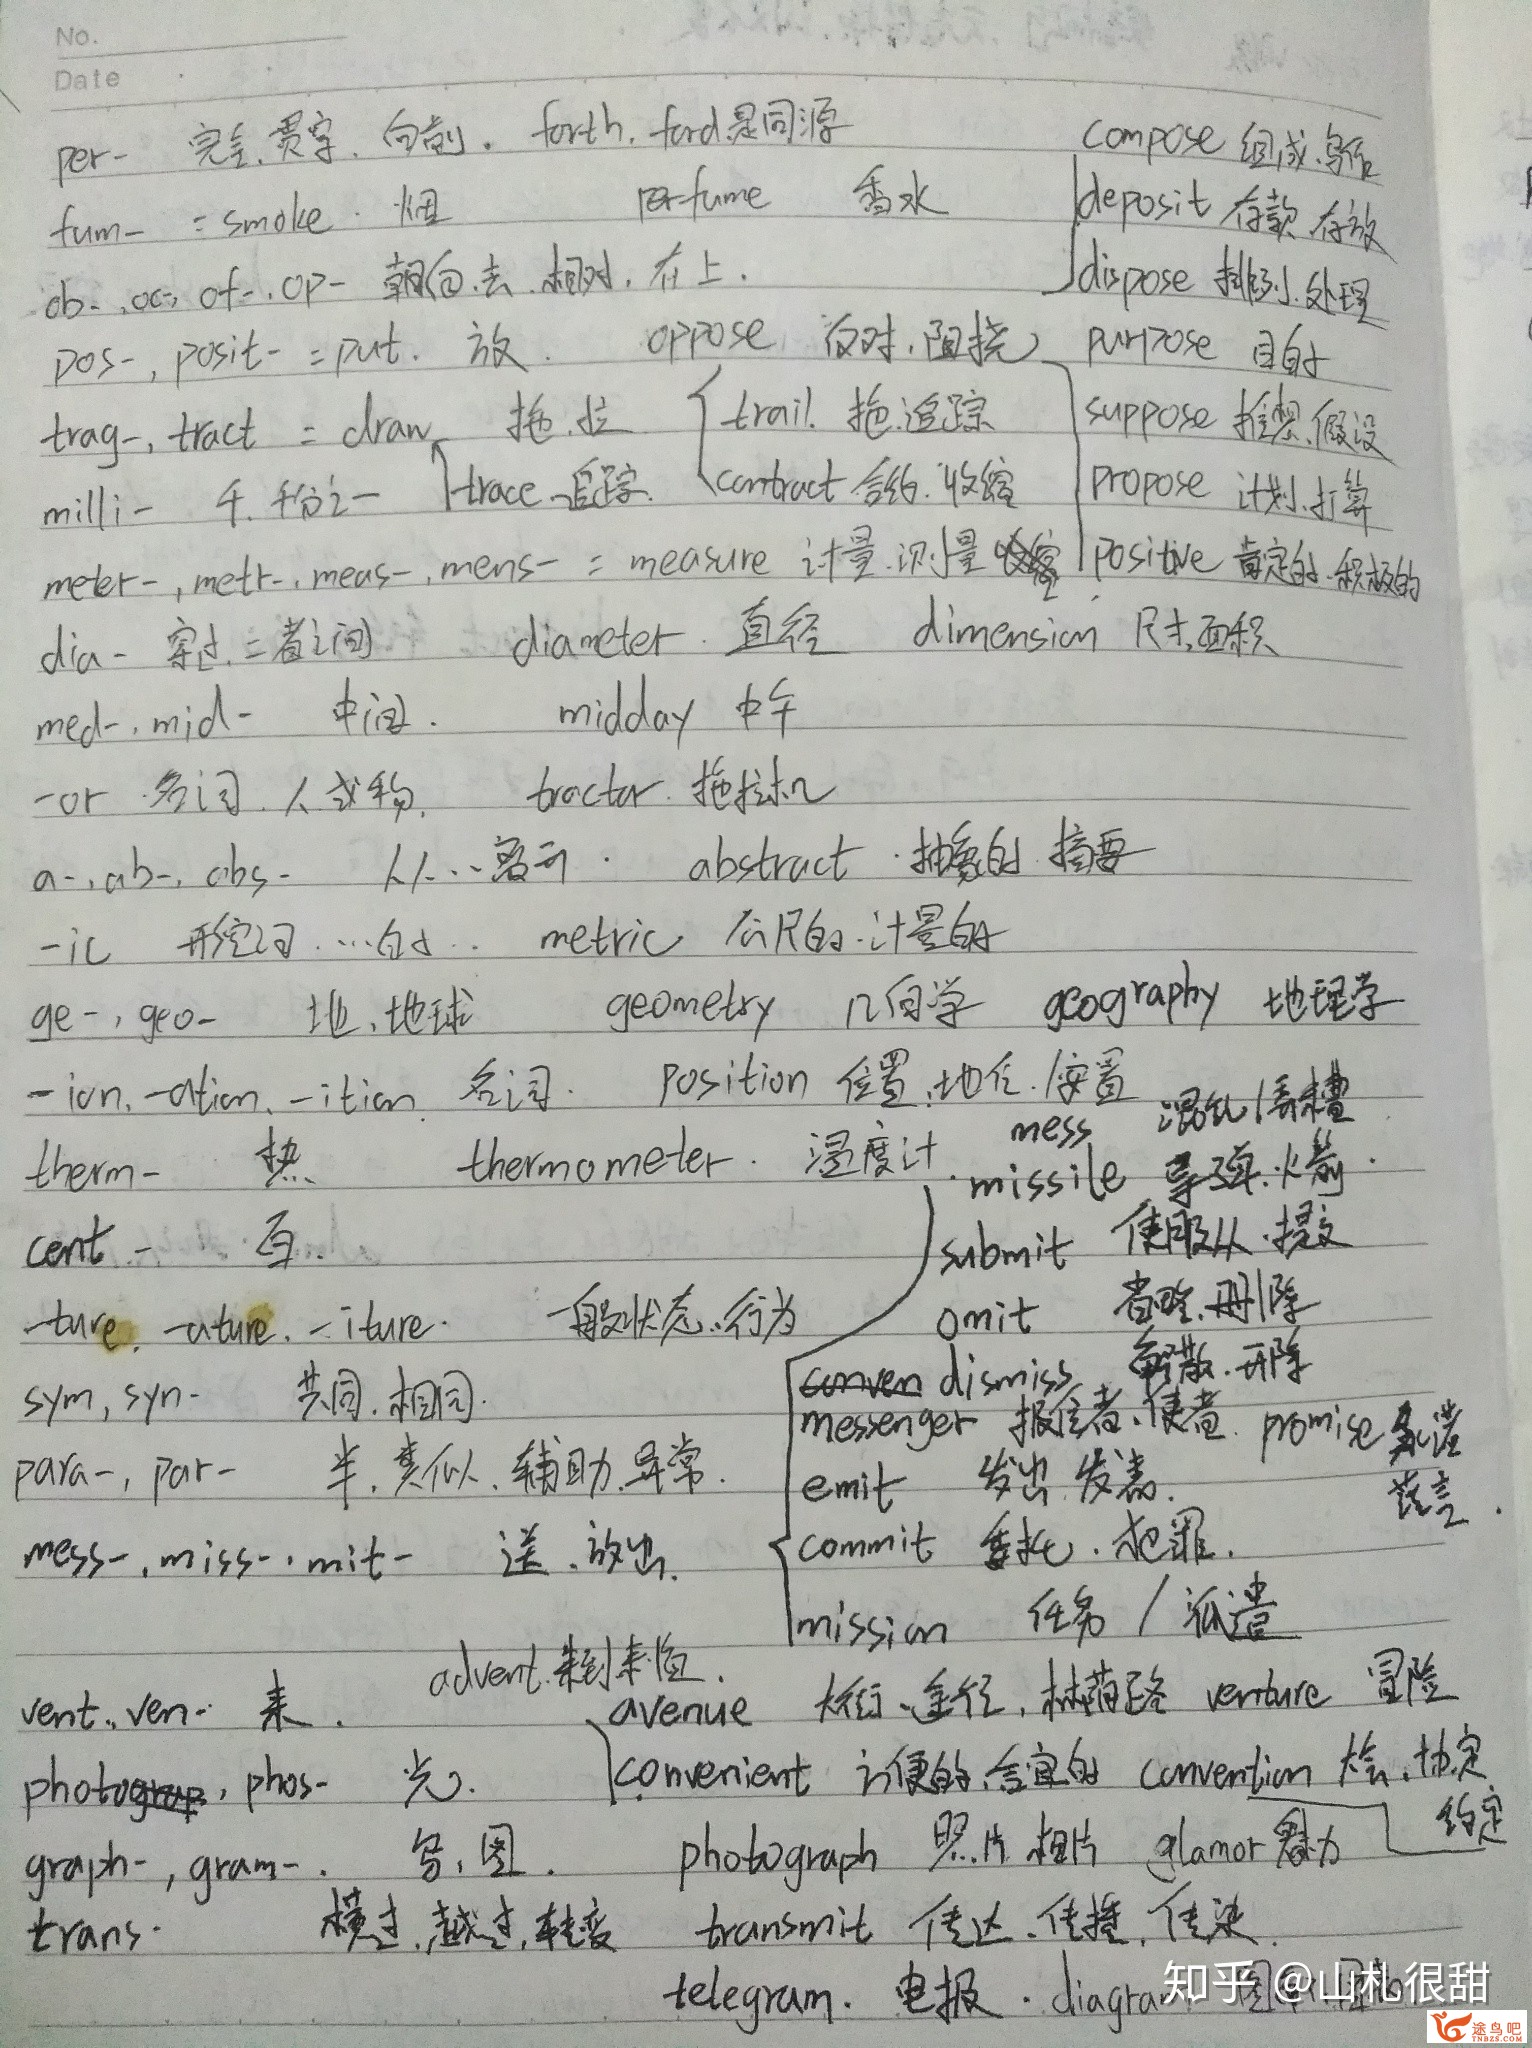 No.
Date
per- 完全、贯穿、向前. forth, ford是同源 compose 组成、写作
fum- = smoke. 烟 perfume 香水 deposit 存款 存放
ob-, oc-, of-, op- 朝向、去、相对、在上. dispose 排列、处理
pos-, posit- = put. 放. oppose 反对、阻挠 purpose 目的
trag-, tract = draw 拖、拉 trail. 拖、追踪 suppose 推想、假设
milli- 千、千分之一 trace 追踪. contract 合约、收缩 propose 计划、打算
meter-, metr-, meas-, mens- = measure 计量、测量 positive 肯定的、积极的
dia- 穿过、二者之间 diameter. 直径 dimension 尺寸、面积
med-, mid- 中间. midday 中午
-or 名词. 人或物. tractor. 拖拉机
a-, ab-, abs- 从…离开. abstract. 抽象的 摘要
-ic 形容词. …的.. metric 公尺的、计量的
ge-, geo- 地、地球 geometry 几何学 geography 地理学
-ion, -ation, -ition 名词. position 位置、地位. /安置
mess 混乱/弄糟
therm- 热 thermometer. 温度计. missile 导弹、火箭.
cent- 百. submit 使服从、提交
-ture, -ature, -iture. 一般状态、行为 omit 省略、删除
sym, syn- 共同、相同. conven dismiss 解散、开除
messenger 报信者、使者. promise 承诺
para-, par- 半、类似、辅助、异常. emit 发出、发表. 诺言.
mess-, miss-, mit- 送、放出. commit 委托、犯罪.
mission 任务 / 派遣
advent. 来到、来临.
vent, ven- 来. avenue 大街、途径、林荫路 venture 冒险
photo, phos- 光. convenient 方便的、合宜的 convention 大会、协定
约定
graph-, gram-. 写、图. photograph 照片 相片 glamor 魅力
trans. 横过、越过、转变 transmit 传达、传播、传染.
telegram. 电报. diagram
知乎 @山札很甜
途鸟吧
TNBZS.COM